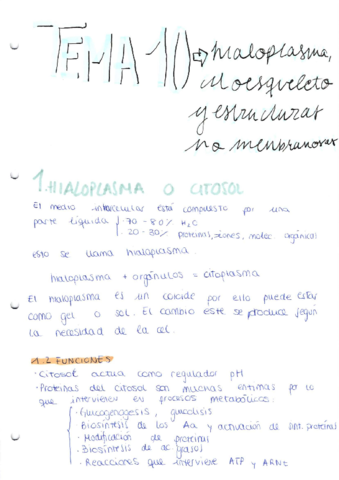 TEMA 10 → hialoplasma,
citoesqueleto
y estructuras
no membranosas
1. HIALOPLASMA O CITOSOL
El medio intercelular está compuesto por una
parte líquida { 70 - 80% H2O
20 - 30% proteinas, iones, molec orgánicas
esto se llama hialoplasma.
hialoplasma + orgánulos = citoplasma
El hialoplasma es un coloide por ello puede estar
como gel o sol. El cambio este se produce según
la necesidad de la cel.
1.2 FUNCIONES
· Citosol actua como regulador pH
· Proteinas del citosol son muchas enzimas por lo
que intervienen en procesos metabólicos:
· Glucogenogesis, glucolisis
Biosíntesis de los Aa y activación de sint. proteinas
· Modificación de proteinas
· Biosíntesis de ac grasos
· Reacciones que interviene ATP y ARNt